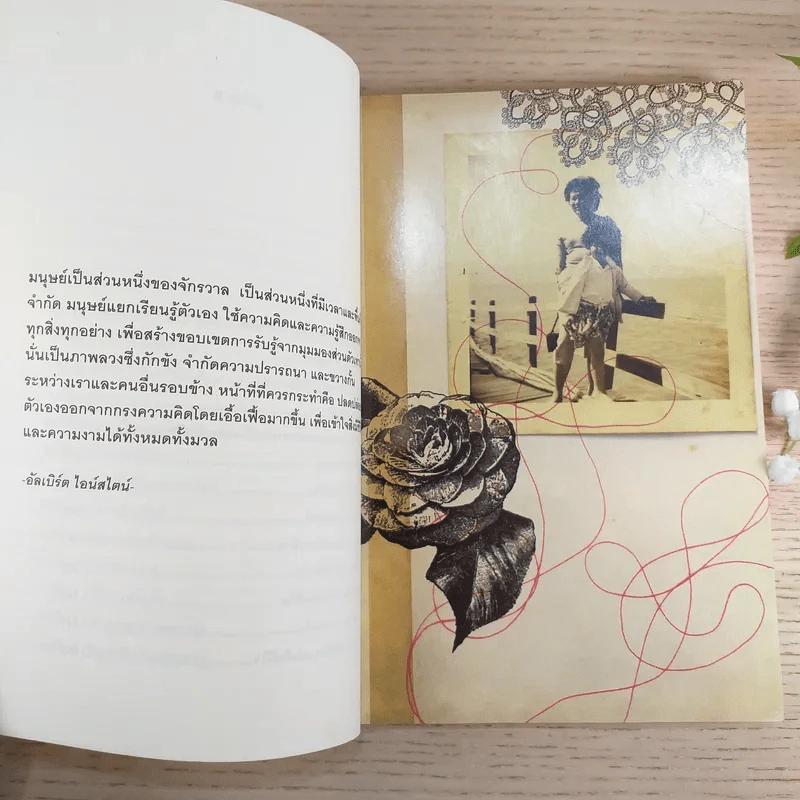 มนุษย์เป็นส่วนหนึ่งของจักรวาล เป็นส่วนหนึ่งที่มีเวลาและพื้น
จำกัด มนุษย์แยกเรียนรู้ตัวเอง ใช้ความคิดและความรู้สึกออกจาก
ทุกสิ่งทุกอย่าง เพื่อสร้างขอบเขตการรับรู้จากมุมมองส่วนตัว
นั่นเป็นภาพลวงซึ่งกักขัง จำกัดความปรารถนา และขวางกั้น
ระหว่างเราและคนอื่นรอบข้าง หน้าที่ที่ควรกระทำคือ ปลดปล่อย
ตัวเองออกจากกรงความคิดโดยเอื้อเฟื้อมากขึ้น เพื่อเข้าใจสิ่งมีชีวิต
และความงามได้ทั้งหมดทั้งมวล
-อัลเบิร์ต ไอน์สไตน์-